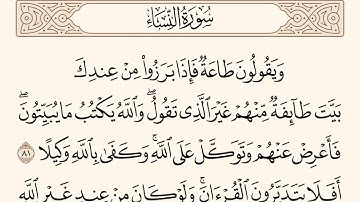 سُورَةُ النِّسَاءِ
وَيَقُولُونَ طَاعَةٌ فَإِذَا بَرَزُوا۟ مِنْ عِندِكَ
بَيَّتَ طَآئِفَةٌ مِّنْهُمْ غَيْرَ ٱلَّذِى تَقُولُ ۖ وَٱللَّهُ يَكْتُبُ مَا يُبَيِّتُونَ ۖ
فَأَعْرِضْ عَنْهُمْ وَتَوَكَّلْ عَلَى ٱللَّهِ ۚ وَكَفَىٰ بِٱللَّهِ وَكِيلًا ٨١
أَفَلَا يَتَدَبَّرُونَ ٱلْقُرْءَانَ ۚ وَلَوْ كَانَ مِنْ عِندِ غَيْرِ ٱللَّهِ